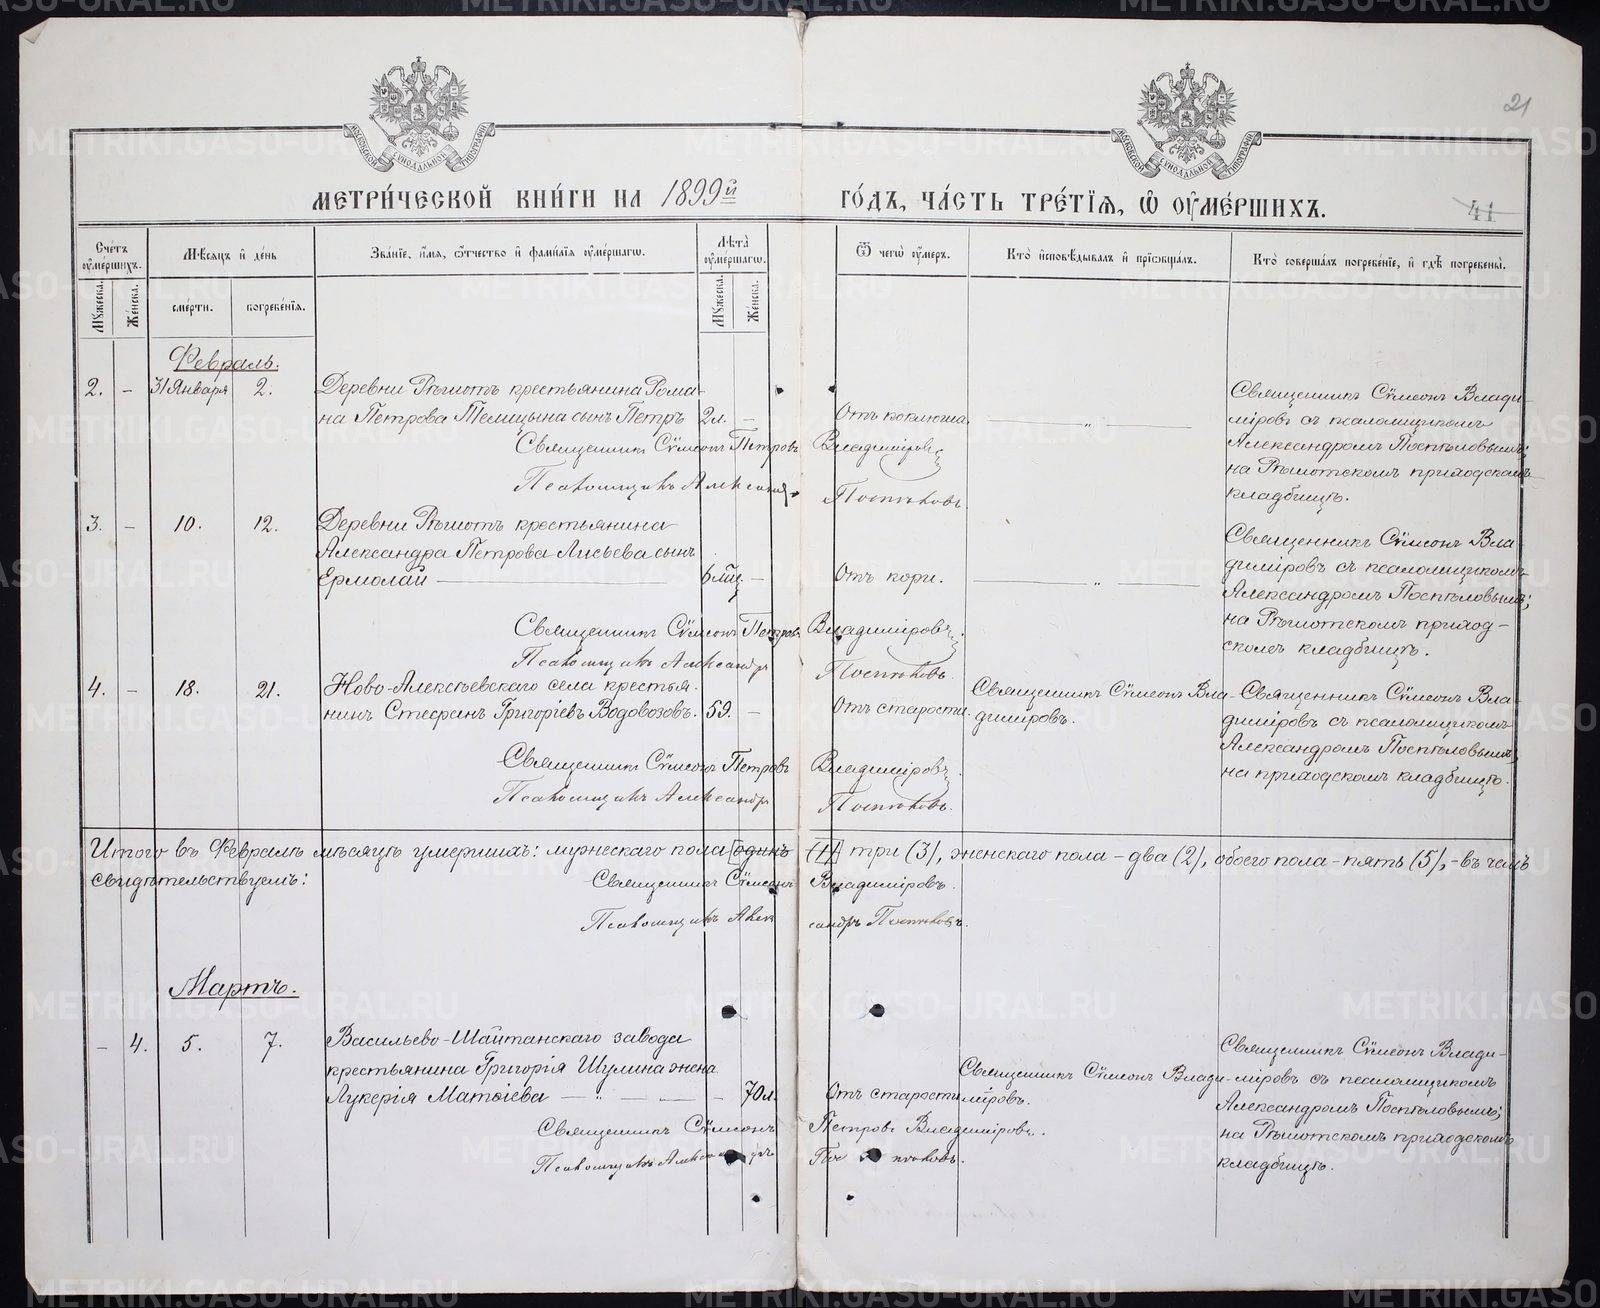 21
МЕТРИ́ЧЕСКОЙ КНИ́ГИ НА 1899й ГО́ДЪ, ЧА́СТЬ ТРЕ́ТІѦ, Ѡ ОУМЕ́РШИХЪ.
41
Сче́тъ оуме́ршихъ.
Мꙋжеска.
Же́нска.
Мѣ́сѧцъ и҆ де́нь
сме́рти.
погребе́нїѧ.
Зва́нїе, и҆́мѧ, ѻ҆́тчество и҆ фами́лїѧ оуме́ршагѡ.
Лѣ́та оуме́ршагѡ.
Мꙋ́жеска.
Же́нска.
Ѿ чегѡ̀ оу́меръ.
Кто̀ и҆сповѣ́дывалъ и҆ прїѡбща́лъ.
Кто̀ соверша́лъ погребе́нїе, и҆ гдѣ̀ погребены̀.
Февраль.
2. - 31 Января 2.
Деревни Рѣшотъ крестьянина Рома-
на Петрова Телицына сынъ Петръ 2л. -
Отъ коклюша. „
Священникъ Сѵмеонъ Влади-
міровъ съ псаломщикомъ
Александромъ Поспѣловымъ;
на Рѣшотскомъ приходскомъ
кладбищѣ.
Священникъ Сѵмеонъ Петровъ Владиміровъ
Псаломщикъ Александръ Поспѣловъ.
3. - 10. 12.
Деревни Рѣшотъ крестьянина
Александра Петрова Лисьева сынъ
Ермолай 6 мѣц. -
Отъ кори. „
Священникъ Сѵмеонъ Вла-
диміровъ съ псаломщикомъ
Александромъ Поспѣловымъ;
на Рѣшотскомъ приход-
скомъ кладбищѣ.
Священникъ Сѵмеонъ Петровъ Владиміровъ.
Псаломщикъ Александръ Поспѣловъ.
4. - 18. 21.
Ново-Алексѣевскаго села крестья-
нинъ Стефанъ Григоріевъ Водовозовъ. 59. -
Отъ старости.
Священникъ Сѵмеонъ Вла-
диміровъ.
Священникъ Сѵмеонъ Вла-
диміровъ съ псаломщикомъ
Александромъ Поспѣловымъ;
на приходскомъ кладбищѣ.
Священникъ Сѵмеонъ Петровъ Владиміровъ.
Псаломщикъ Александръ Поспѣловъ.
Итого въ Февралѣ мѣсяцѣ умершихъ: мужескаго пола одинъ (1) три (3), женскаго пола - два (2), обоего пола - пять (5), - въ чемъ
свидѣтельствуемъ:
Священникъ Сѵмеонъ Владиміровъ.
Псаломщикъ Александръ Поспѣловъ.
Мартъ.
- 4. 5. 7.
Васильево-Шайтанскаго завода
крестьянина Григорія Шулина жена
Лукерія Матѳіева - „ - - - 70 л.
Отъ старости
Священникъ Сѵмеонъ Влади-
міровъ.
Священникъ Сѵмеонъ Влади-
міровъ съ псаломщикомъ
Александромъ Поспѣловымъ;
на Рѣшотскомъ приходскомъ
кладбищѣ.
Священникъ Сѵмеонъ Петровъ Владиміровъ.
Псаломщикъ Александръ Поспѣловъ.
METRIKI.GASO-URAL.RU